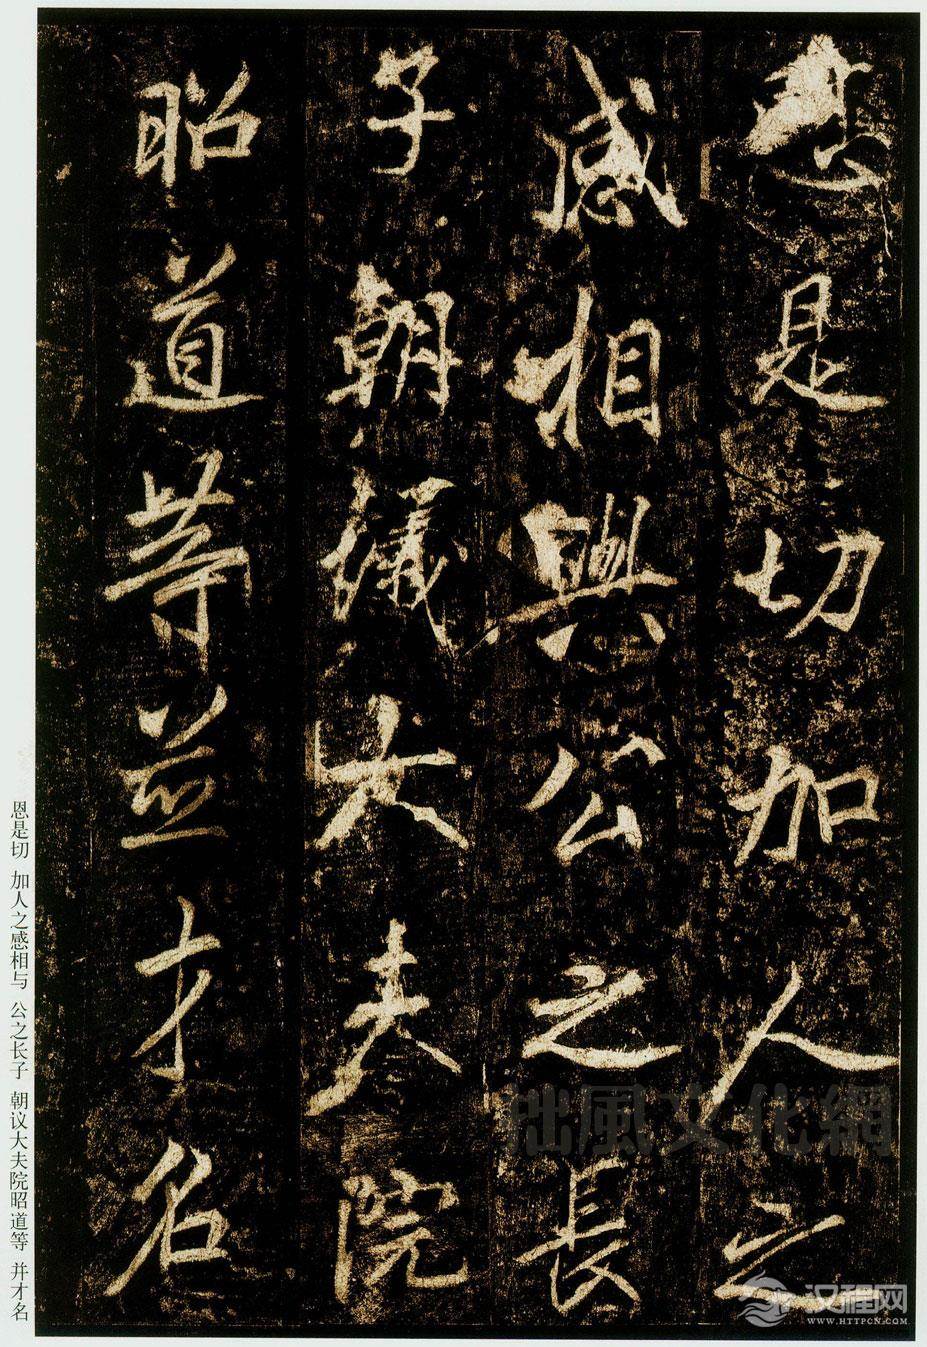 恩是切加人之
感相與公之長
子朝議大夫院
昭道等並才名
恩是切 加人之感相与 公之长子 朝议大夫院昭道等 并才名
拙風文化網
汉程网
WWW.HTTPCN.COM